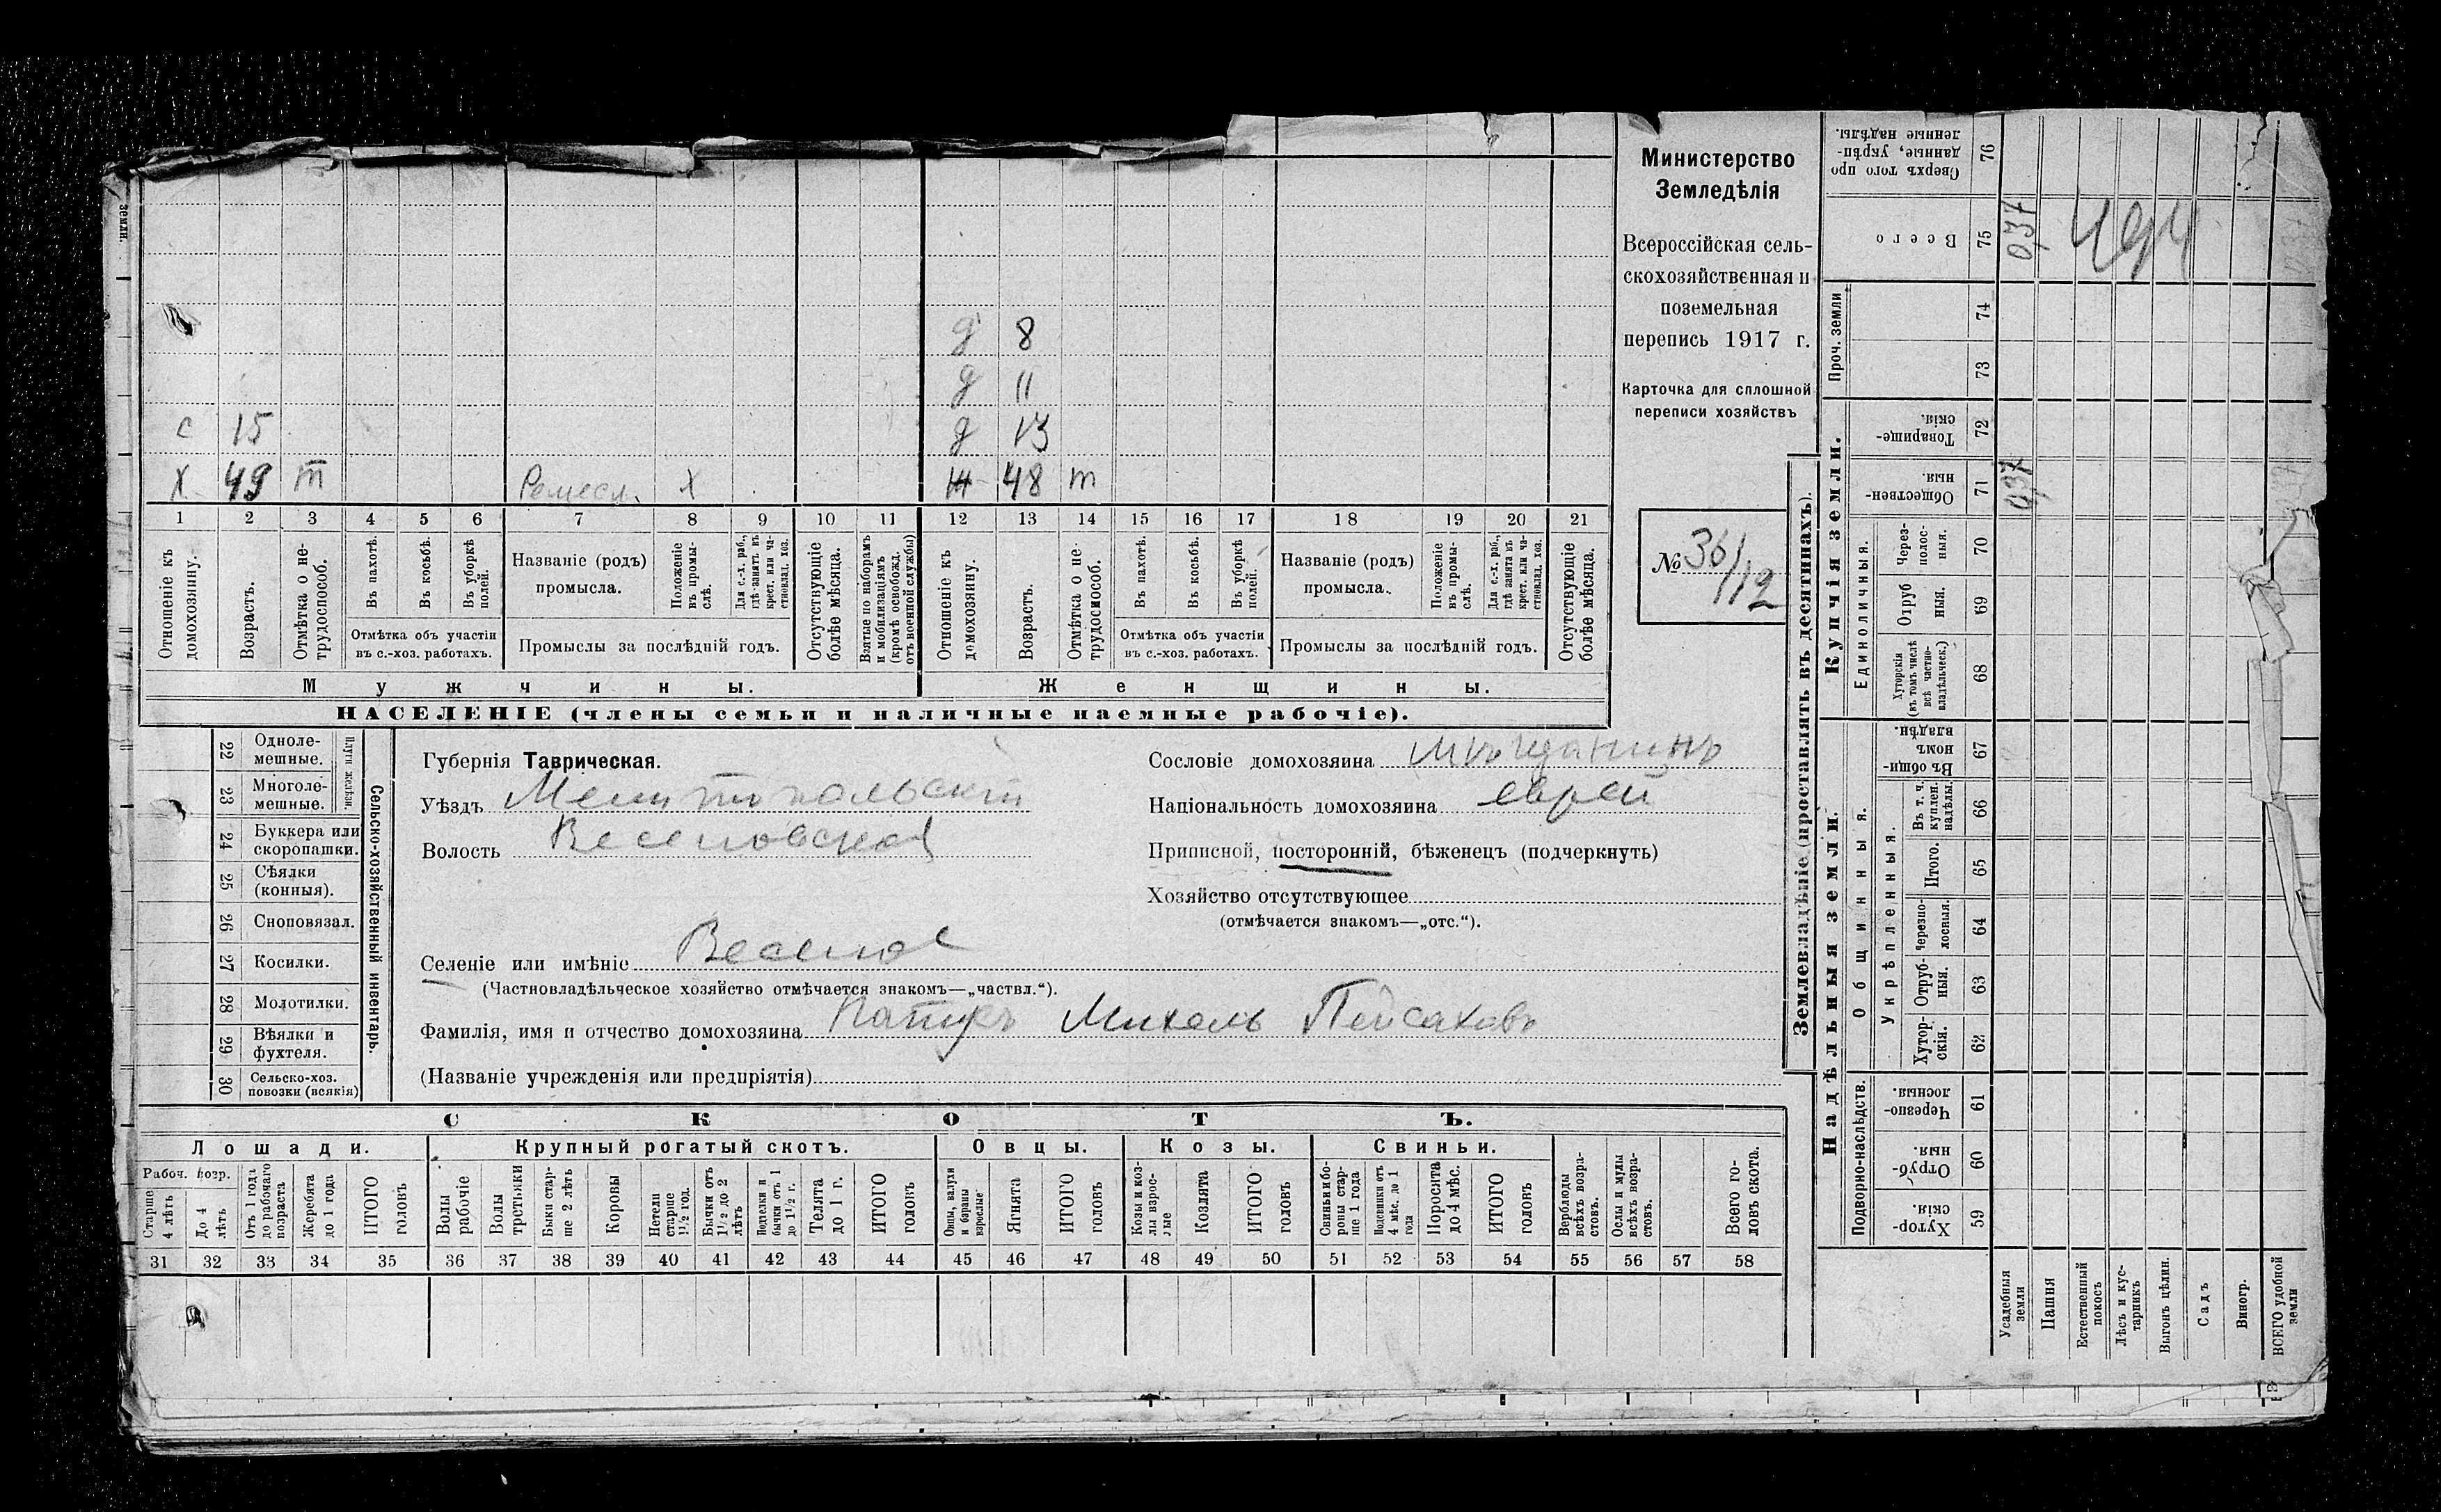 земли.
д 8
д 11
с 15 д 13
Х 49 т Ремесл. х Ж 48 т
1 2 3 4 5 6 7 8 9 10 11 12 13 14 15 16 17 18 19 20 21
Отношеніе къ домохозяину.
Возрастъ.
Отмѣтка о не-трудоспособ.
Въ пахотѣ.
Въ косьбѣ.
Въ уборкѣ полей.
Отмѣтка объ участіи
въ с.-хоз. работахъ.
Названіе (родъ)
промысла.
Положеніе въ промы-слѣ.
Для с.-х. раб., гдѣ занятъ въ крест. или ча-стновлад. хоз.
Промыслы за послѣдній годъ.
Отсутствующіе болѣе мѣсяца.
Взятые по наборамъ и мобилизаціямъ (кромѣ освобожд. отъ военной службы)
Отношеніе къ домохозяину.
Возрастъ.
Отмѣтка о не-трудоспособ.
Въ пахотѣ.
Въ косьбѣ.
Въ уборкѣ полей.
Отмѣтка объ участіи
въ с.-хоз. работахъ.
Названіе (родъ)
промысла.
Положеніе въ промы-слѣ.
Для с.-х. раб., гдѣ занята въ крест. или ча-стновлад. хоз.
Промыслы за послѣдній годъ.
Отсутствующіе болѣе мѣсяца.
Мужчины. Женщины.
НАСЕЛЕНІЕ (члены семьи и наличные наемные рабочіе).
Министерство
Земледѣлія
Всероссійская сель-
скохозяйственная и
поземельная
перепись 1917 г.
Карточка для сплошной
переписи хозяйствъ
№ 36/112
Сельско-хозяйственный инвентарь.
Плуги желѣзн.
22 Одноле-мешные.
23 Многоле-мешные.
24 Буккера или скоропашки.
25 Сѣялки (конныя).
26 Сноповязал.
27 Косилки.
28 Молотилки.
29 Вѣялки и фухтеля.
30 Сельско-хоз. повозки (всякія)
Губернія Таврическая.
Уѣздъ Мелитопольскій
Волость Веселовская
Селеніе или имѣніе Веселое
(Частновладѣльческое хозяйство отмѣчается знакомъ—„частвл.“).
Фамилія, имя и отчество домохозяина Михель Пейсаховъ
(Названіе учрежденія или предпріятія)
Сословіе домохозяина Мѣщанинъ
Національность домохозяина еврей
Приписной, посторонній, бѣженецъ (подчеркнуть)
Хозяйство отсутствующее
(отмѣчается знакомъ—„отс.“).
СКОТЪ.
Лошади. Крупный рогатый скотъ. Овцы. Козы. Свиньи.
Рабоч. возр.
Старше 4 лѣтъ
До 4 лѣтъ
Отъ 1 года до рабочаго возраста
Жеребята до 1 года
ИТОГО головъ
Волы рабочіе
Волы третьяки
Быки стар-ше 2 лѣтъ
Коровы
Нетели старше 1½ год.
Бычки отъ 1½ до 2 лѣтъ
Подтелки и бычки отъ 1 до 1½ г.
Телята до 1 г.
ИТОГО головъ
Овцы, валухи и бараны взрослые
Ягнята
ИТОГО головъ
Козы и коз-лы взрос-лые
Козлята
ИТОГО головъ
Свиньи и бо-ровы стар-ше 1 года
Подсвинки отъ 4 мѣс. до 1 года
Поросята до 4 мѣс.
ИТОГО головъ
Верблюды всѣхъ возра-стовъ.
Ослы и мулы всѣхъ возра-стовъ.
Всего го-ловъ скота.
31 32 33 34 35 36 37 38 39 40 41 42 43 44 45 46 47 48 49 50 51 52 53 54 55 56 57 58
Землевладѣніе (проставлять въ десятинахъ).
Надѣльныя земли. Купчія земли. Проч. земли
Подворно-наслѣдств.
Общинныя.
Укрѣпленныя.
Единоличныя.
59 Хутор-скія.
60 Отруб-ныя.
61 Черезпо-лосныя.
62 Хутор-скія.
63 Отруб-ныя.
64 Черезпо-лосныя.
65 Итого.
66 Въ т. ч. куплен. надѣлы.
67 Въ общи-номъ владѣн.
68 Хуторскія (въ томъ числѣ всѣ частно-владѣльческ.)
69 Отруб ныя.
70 Через-полос-ныя.
71 Обществен-ныя 0,37
72 Товарище-скія.
73
74
75 Всего 0,37
76 Сверхъ того про данные, укрѣп-ленные надѣлы.
Усадебныя земли
Пашня
Естественный покосъ
Лѣсъ и кус-тарникъ
Выгонъ цѣлин.
Садъ
Виногр.
ВСЕГО удобной земли